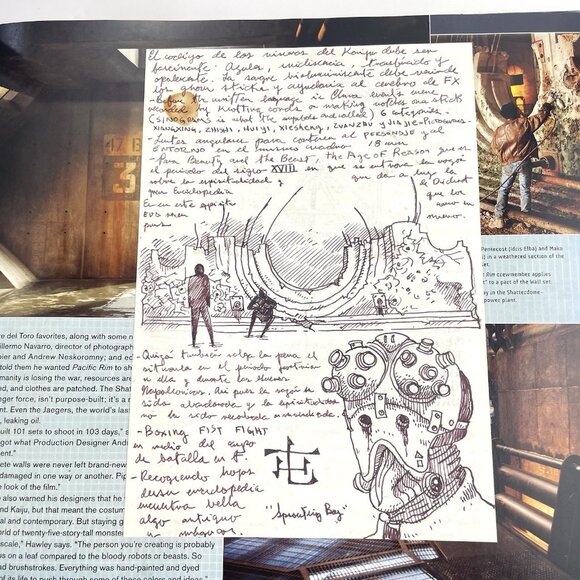 El codigo de las visceras del Kaiju debe ser
fascinante. Azules, iridiscencia, translucido y
opalescente. La sangre bioluminiscente debe venir de
los ghoum sticks y ayudaria al cerebro de FX
- Before the written language in China events were
recorded by knotting cords or making notches on a stick
(SINOGRAMS is what the symbols are called) 6 categories.
XIANGXING, ZHISHI, HUIYI, XIESHENG, ZUANZHU y JIAJIE - PICTOGRAMS
- Lentes angulares para contener el PERSONAJE y al
ENTORNO en el mismo cuadro 18 mm
- Para Beauty and the Beast, the Age of Reason que es
el periodo del siglo XVIII en que se entrona la razón
sobre la espiritualidad y que da a luz la
gran Enciclopedia de Diderot
En en este
que los
muevo.
- Quizá también valga la pena el
situarla en el periodo
a ella y durante las Guerras
Napoleónicas. Así pues la razón ha
sido abandonada y la espiritualidad
no ha sido recobrada
- BOXING FIST FIGHT
en medio del campo
de batalla en
- Recogiendo hojas
de su enciclopedia
encuentra bella
algo antiguo
"Sprouting Boy"
47 B
3
Pentecost (Idris Elba) and Mako
) in a weathered section of the
set.
Rim crewmember applies
" to a part of the Wall set.
ay in the Shatterdome–
power plant.
re del Toro favorites, along with some n
illermo Navarro, director of photograp
pier and Andrew Neskoromny; and ec
told them he wanted Pacific Rim to sh
manity is losing the war, resources are
d, and clothes are patched. The Shat
nger force, isn't purpose-built; it's a r
nt. Even the Jaegers, the world's las
, leaking oil.
uilt 101 sets to shoot in 103 days,"
got what Production Designer And
ent."
ete walls were never left brand-new
damaged in one way or another. Pip
e look of the film."
also warned his designers that he
nd Kaiju, but that meant the costum
al and contemporary. But staying g
orld of twenty-five-story-tall monster
scale," Hawley says. "The person you're creating is probably
s on a leaf compared to the bloody robots or beasts. So
ad brushstrokes. Everything was hand-painted and dyed
t of its life to push through some of these colors and ideas."